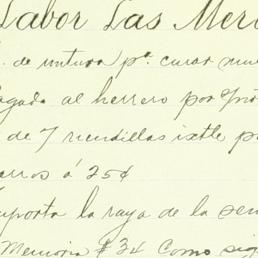 Labor Las Mer
. de untura pª. curar mu
agado al herrero por
de 7 riendillas ixtle p
arros á 25¢
mporta la raya de la sem
Memoria $34 Como sig